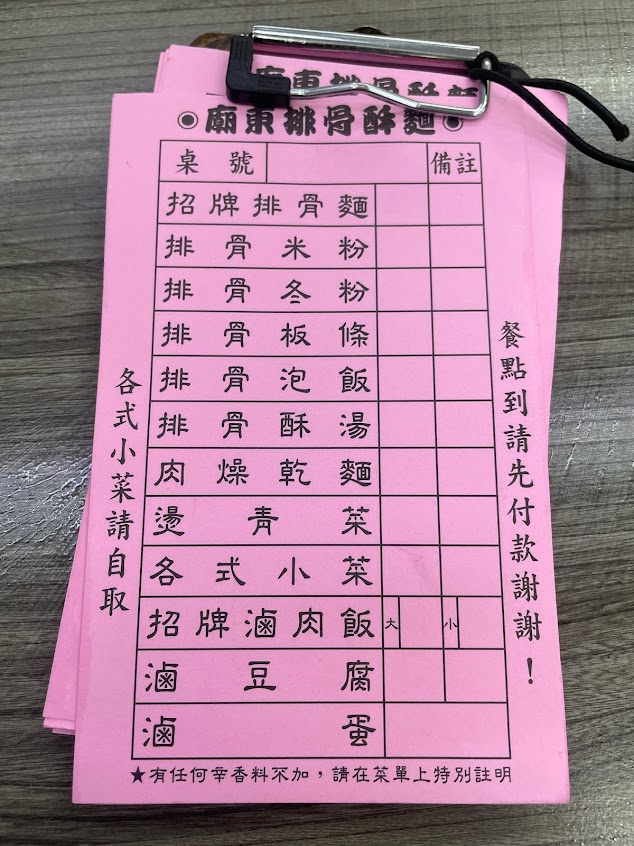 廟東排骨酥麵
◉廟東排骨酥麵◉
桌號 備註
招牌排骨麵
排骨米粉
排骨冬粉
排骨板條
排骨泡飯
排骨酥湯
肉燥乾麵
燙青菜
各式小菜
招牌滷肉飯 大 小
滷豆腐
滷蛋
各式小菜請自取
餐點到請先付款謝謝！
★有任何辛香料不加，請在菜單上特別註明